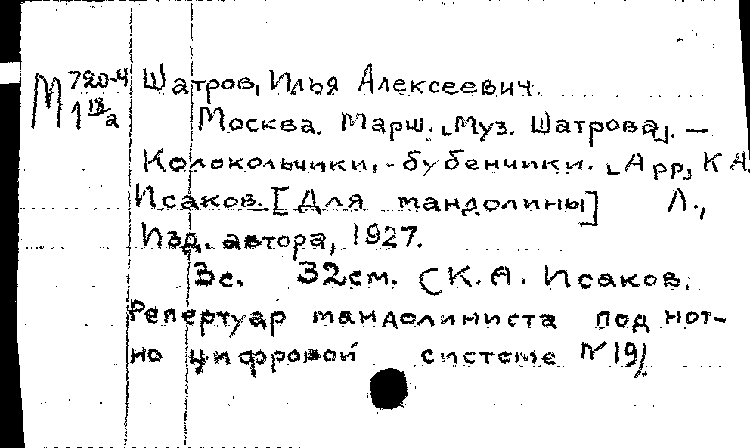 М 720-4 Шатров, Илья Алексеевич.
1 18/а Москва. Марш. [Муз. Шатрова]. —
Колокольчики, - бубенчики. [Арр, К.А.
Исаков. [Для мандолины] Л.,
Изд. автора, 1927.
3с. 32см. (К.А. Исаков.
Репертуар мандолиниста под нот-
но цифровой системе №19)